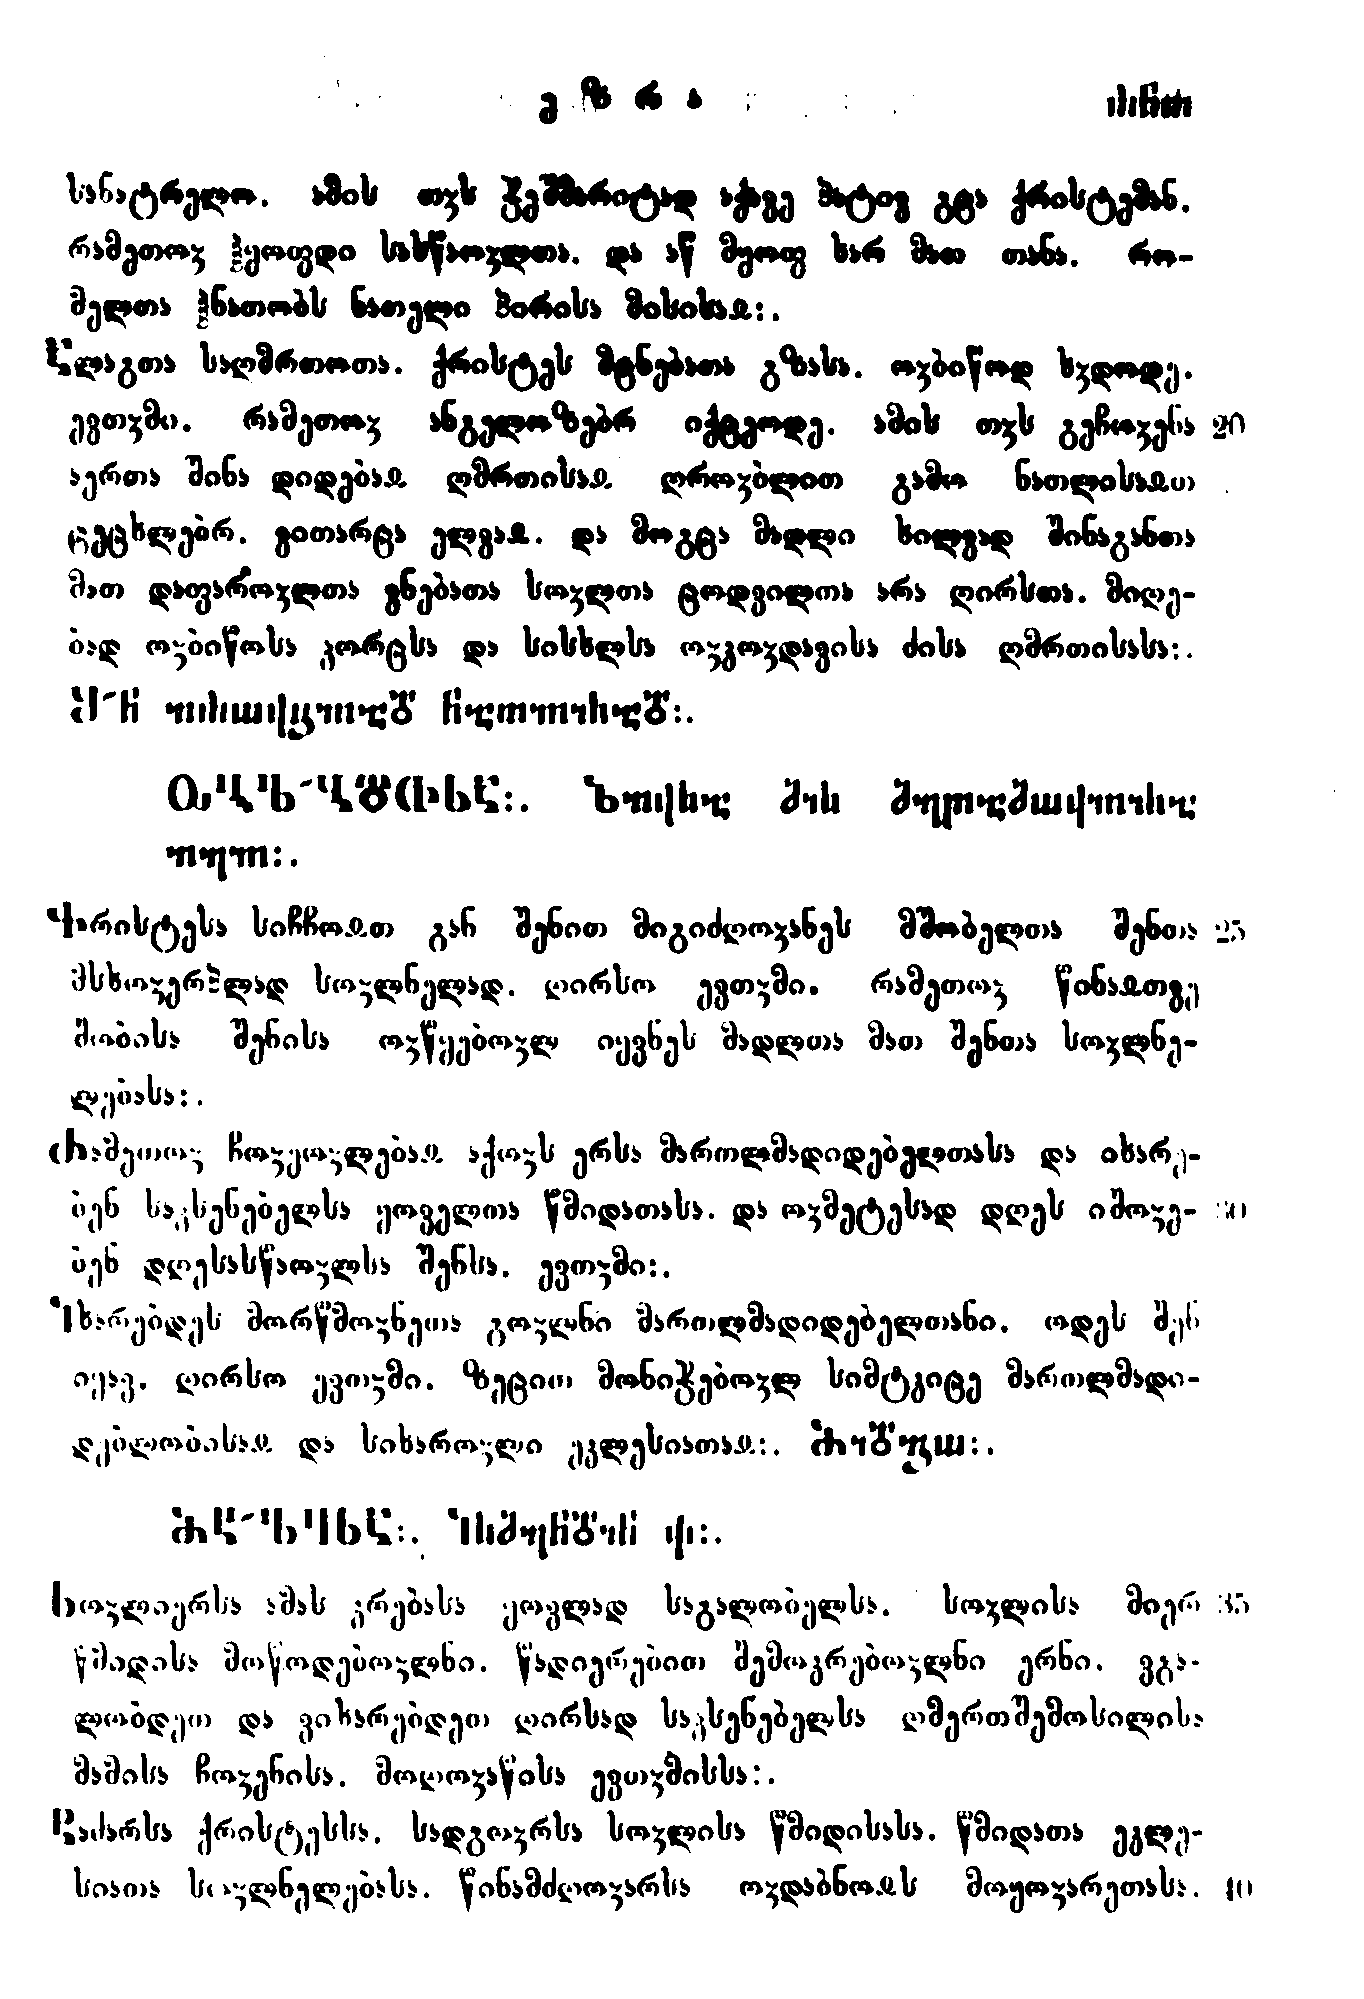 სანატრელო. ამის თჳს ჭეშმარიტად აქავე პატივ გცა ქრისტემან.
რამეთოჳ ჰყოფდი სასწაოჳლთა. და აწ მყოფ ხარ მათ თანა. რო-
მელთა ჰნათობს ნათელი პირისა მისისაჲ:.
Ⴀლაგთა საღმრთოთა. ქრისტეს მცნებათა გზასა. ოჳბიწოდ ხჳდოდე.
ევთჳმი. რამეთოჳ ანგელოზებრ იქცეოდე. ამის თჳს გეჩოჳენა 20
აერთა შინა დიდებაჲ ღმრთისაჲ ღროჳბლით გამო ნათლისაჲთ
ცეცხლებრ. ვითარცა ელვაჲ. და მოგცა მადლი ხილვად შინაგანთა
მათ დაფაროჳლთა ვნებათა სოჳლთა ცოდვილთა არა ღირსთა. მიღე-
ბად ოჳბიწოსა ჴორცსა და სისხლსა ოჳკოჳდავისა ძისა ღმრთისასა:.
Ⴕრისტესა სიჩჩოჲთ გან შენით მიგიძღოჳანეს მშობელთა შენთა 25
მსხოჳერპლად სოჳლნელად. ღირსო ევთჳმი. რამეთოჳ წინაჲთვე
შობისა შენისა ოჳწყებოჳლ იყვნეს მადლთა მათ შენთა სოჳლნე-
ლებასა:.
Ⴐამეთოჳ ჩოჳეოჳლებაჲ აქოჳს ერსა მართლმადიდებელთასა და იხარე-
ბენ საჴსენებელსა ყოველთა წმიდათასა. და ოჳმეტესად დღეს იშოჳე- 30
ბენ დღესასწაოჳლსა შენსა. ევთჳმი:.
Ⴈხარებდეს მორწმოჳნეთა გოჳლნი მართლმადიდებელთანი. ოდეს შენ
იყავ. ღირსო ევთჳმი. ზეცით მონიჭებოჳლ სიმტკიცე მართლმადი-
დებლობისაჲ და სიხაროჳლი ეკლესიათაჲ:.
Ⴑოჳლიერსა ამას კრებასა ყოვლად საგალობელსა. სოჳლისა მიერ 35
წმიდისა მოწოდებოჳლნი. წადიერებით შემოკრებოჳლნი ერნი. ვგა-
ლობდეთ და ვიხარებდეთ ღირსად საჴსენებელსა ღმერთშემოსილისა
მამისა ჩოჳენისა. მოღოჳაწისა ევთჳმისსა:.
Ⴒაძარსა ქრისტესსა. სადგოჳრსა სოჳლისა წმიდისასა. წმიდათა ეკლე-
სიათა სოჳლნელებასა. წინამძღოჳარსა ოჳდაბნოჲს მოყოჳარეთასა. 40